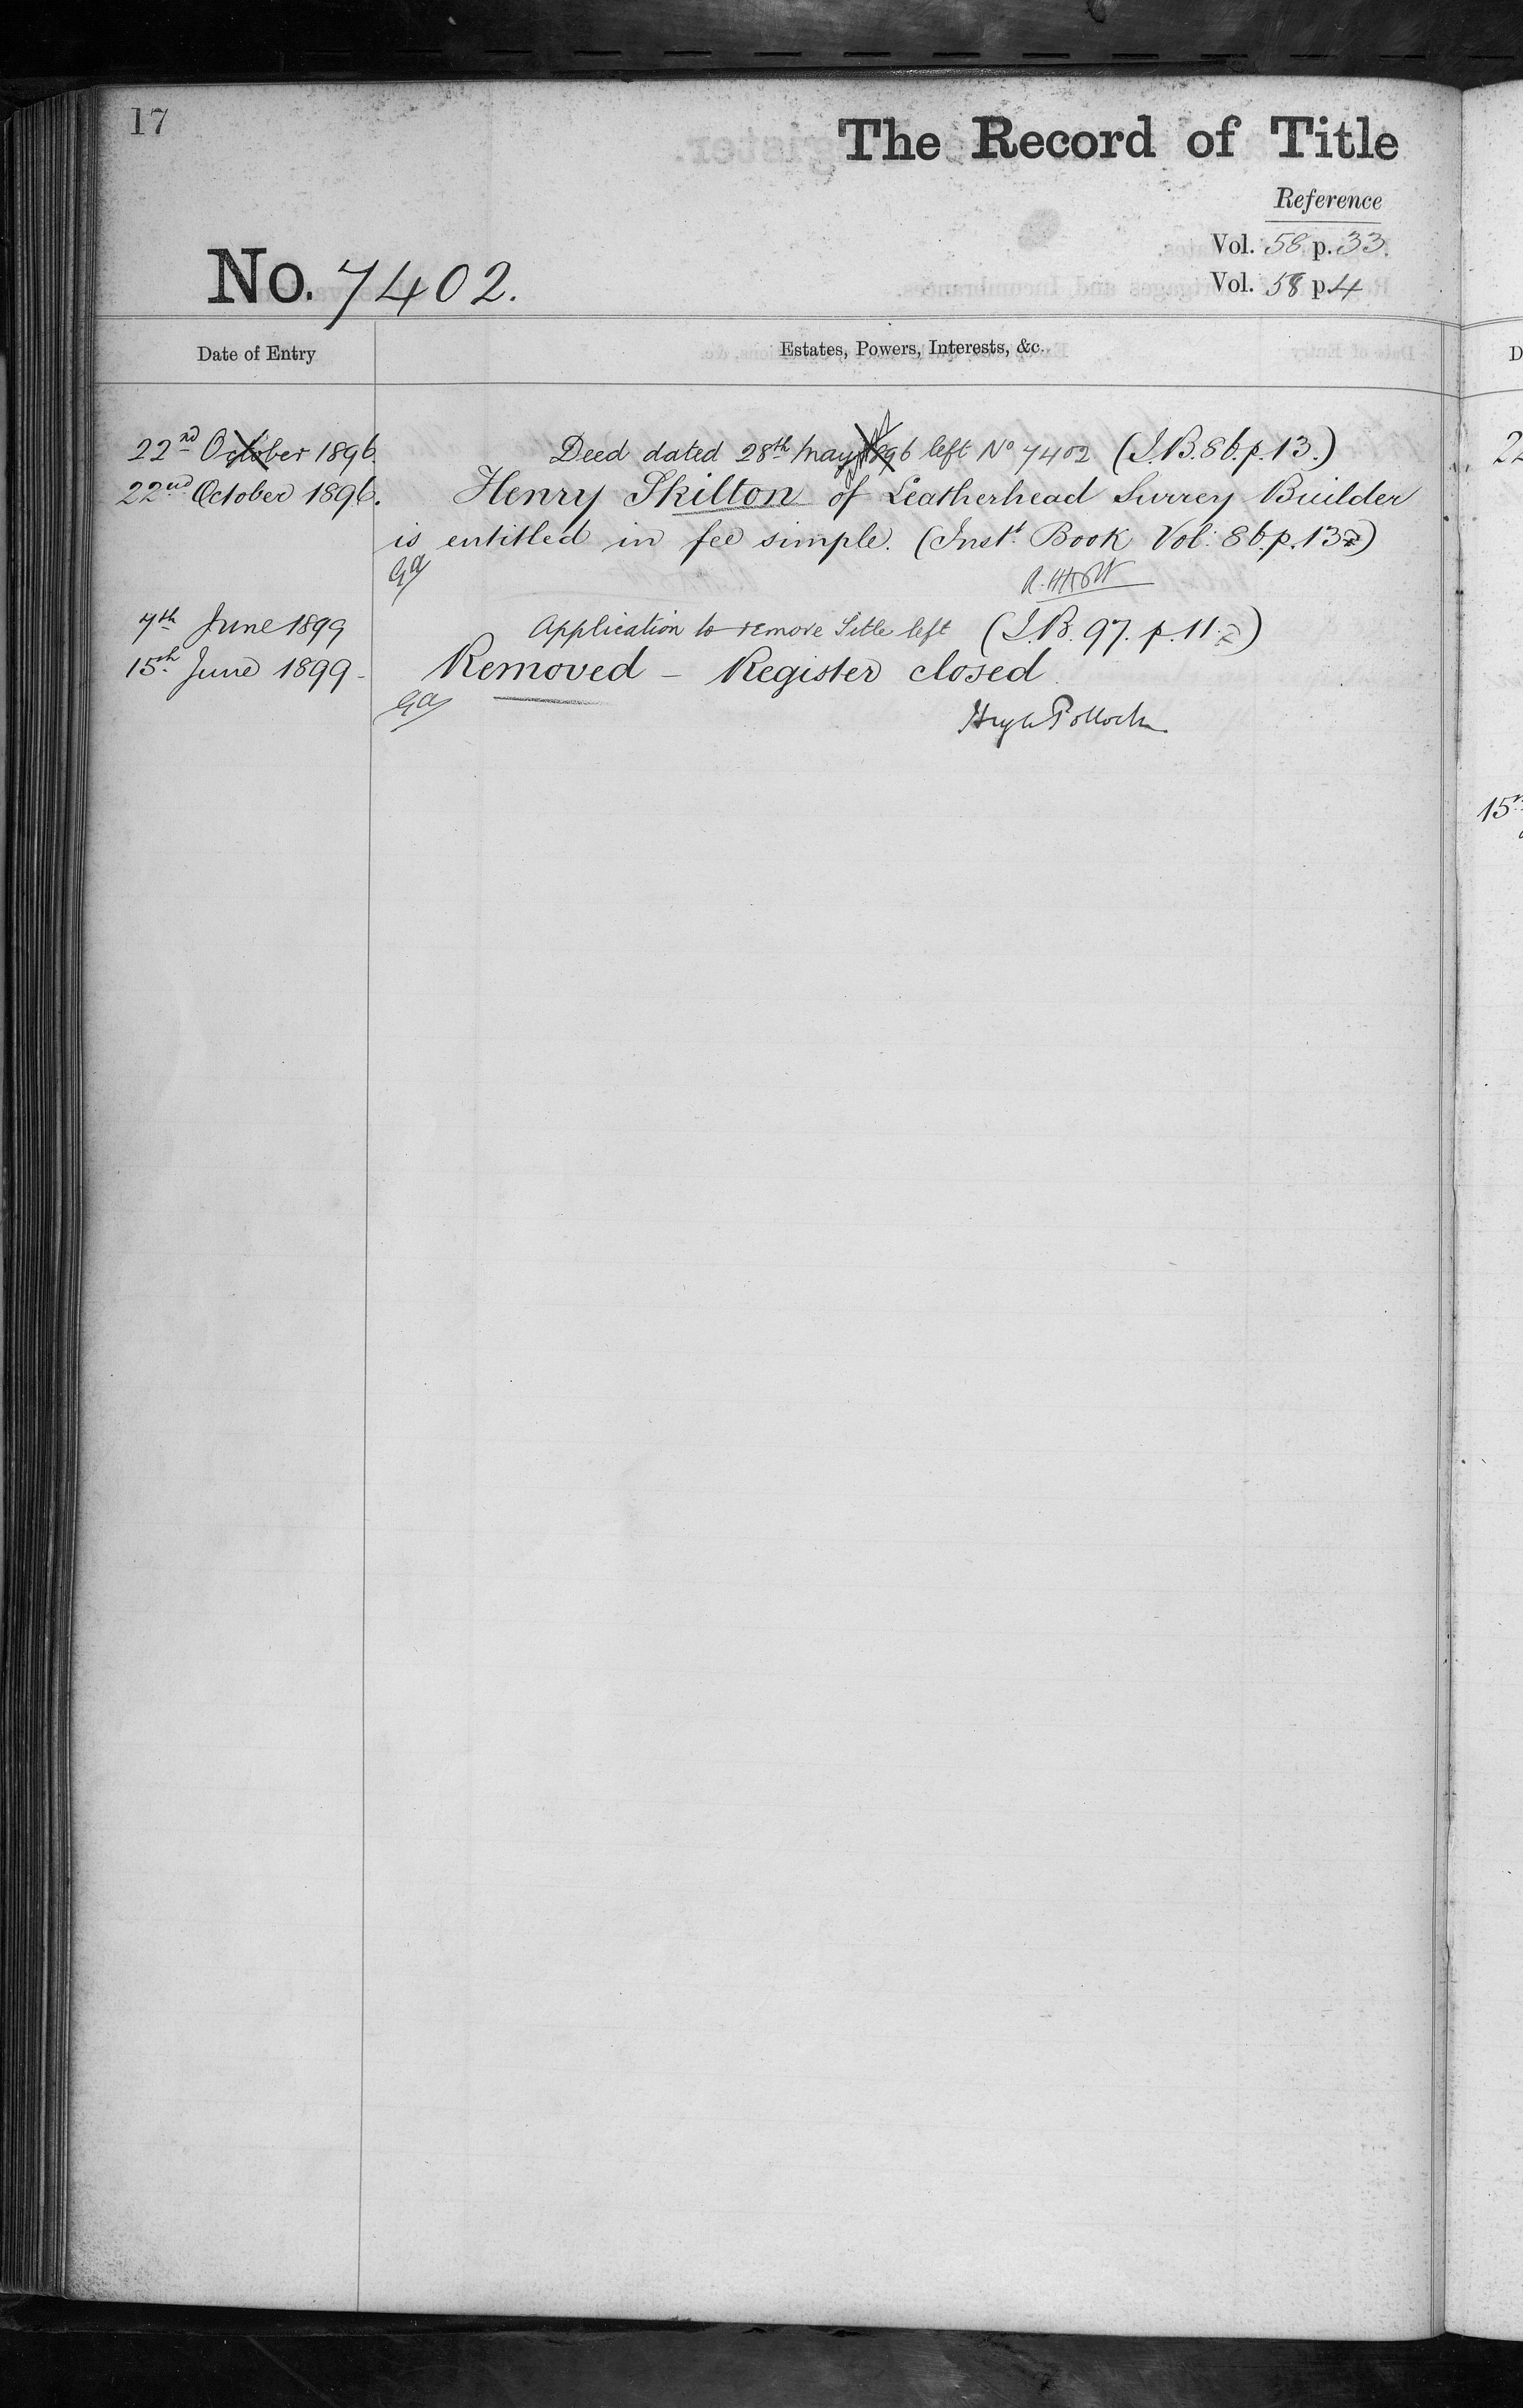 17
The Record of Title
Reference
Vol. 58 p. 33.
No. 7402.
Vol. 58 p 4
Date of Entry
Estates, Powers, Interests, &c.
22nd October 1896. Deed dated 28th May 1896 left No 7402 (I.B. 86. p. 13.)
22nd October 1896. Henry Skilton of Leatherhead Surrey Builder
is entitled in fee simple. (Inst. Book Vol. 86. p. 13)
7th June 1899 Application to remove Title left (I.B. 97. p. 11)
15th June 1899 - Removed - Register closed
Hugh Pollock
22
15